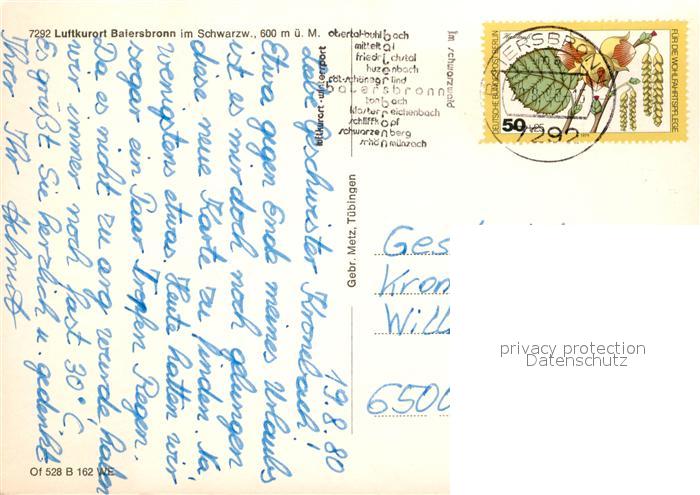 7292 Luftkurort Baiersbronn im Schwarzw., 600 m ü. M.
19.8.80
Liebe Geschwister Krombach!
Etwa gegen Ende meines Urlaubs
ist es mir doch noch gelungen
diese neue Karte zu finden. Na
wenigstens etwas. Heute hatten wir
sogar ein Paar Tropfen Regen.
Da es nicht zu arg wurde haben
wir immer noch fast 30°C.
Es grüßt Sie herzlich u. gedenkt
Ihrer Ihr Helmut
Of 528 B 162 WE
Gebr. Metz, Tübingen
luftkurort-wintersport
obertal-buhlbach
mitteltal
friedrichstal
huzenbach
röt-schönegründ
baiersbronn
tonbach
klosterreichenbach
schliffkopf
schwarzenberg
schönmünzach
im schwarzwald
BAIERSBRONN
7292
DEUTSCHE BUNDESPOST BERLIN
FÜR DIE WOHLFAHRTSPFLEGE
50
Ges
Kron
Will
6500
privacy protection
Datenschutz